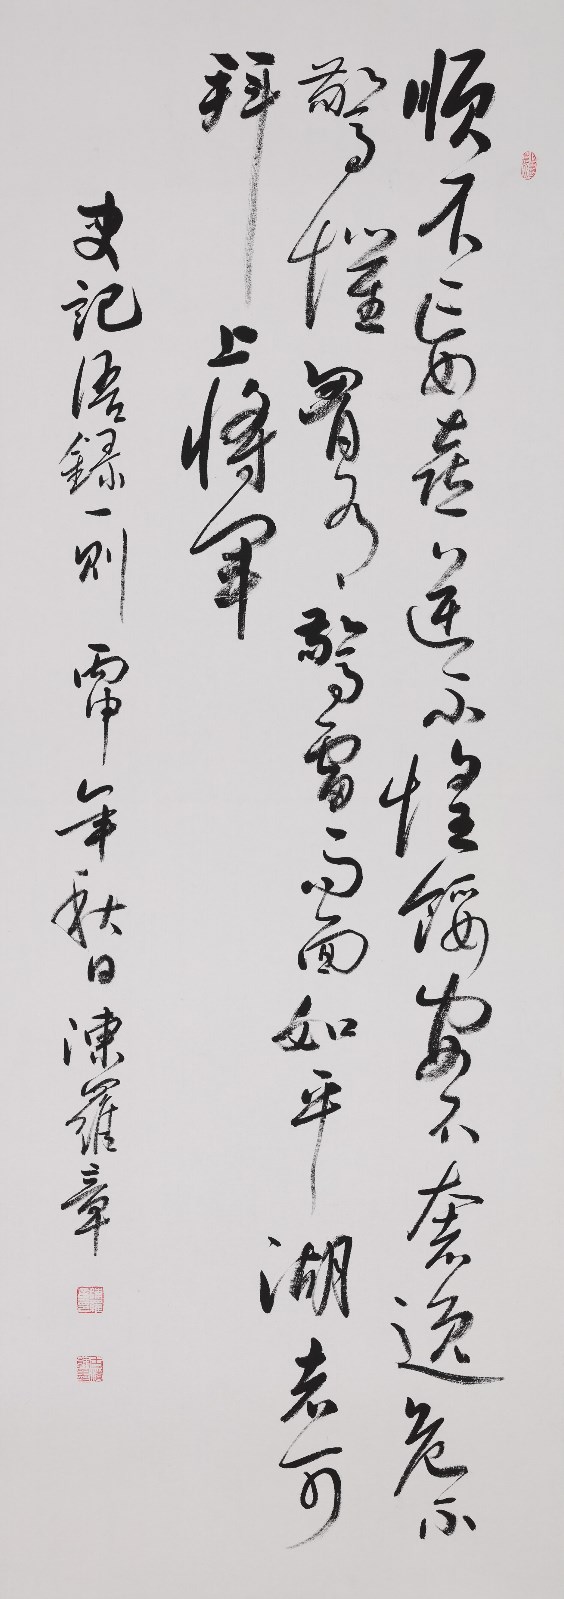 順不妄喜逆不惶餒安不奢逸危不
驚懼胸有驚雷而面如平湖者可
拜上將軍
史記語錄一則 丙申年秋日 陳羅章